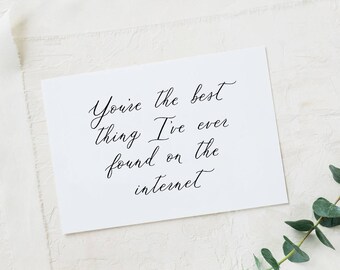 You're the best
thing I've ever
found on the
internet